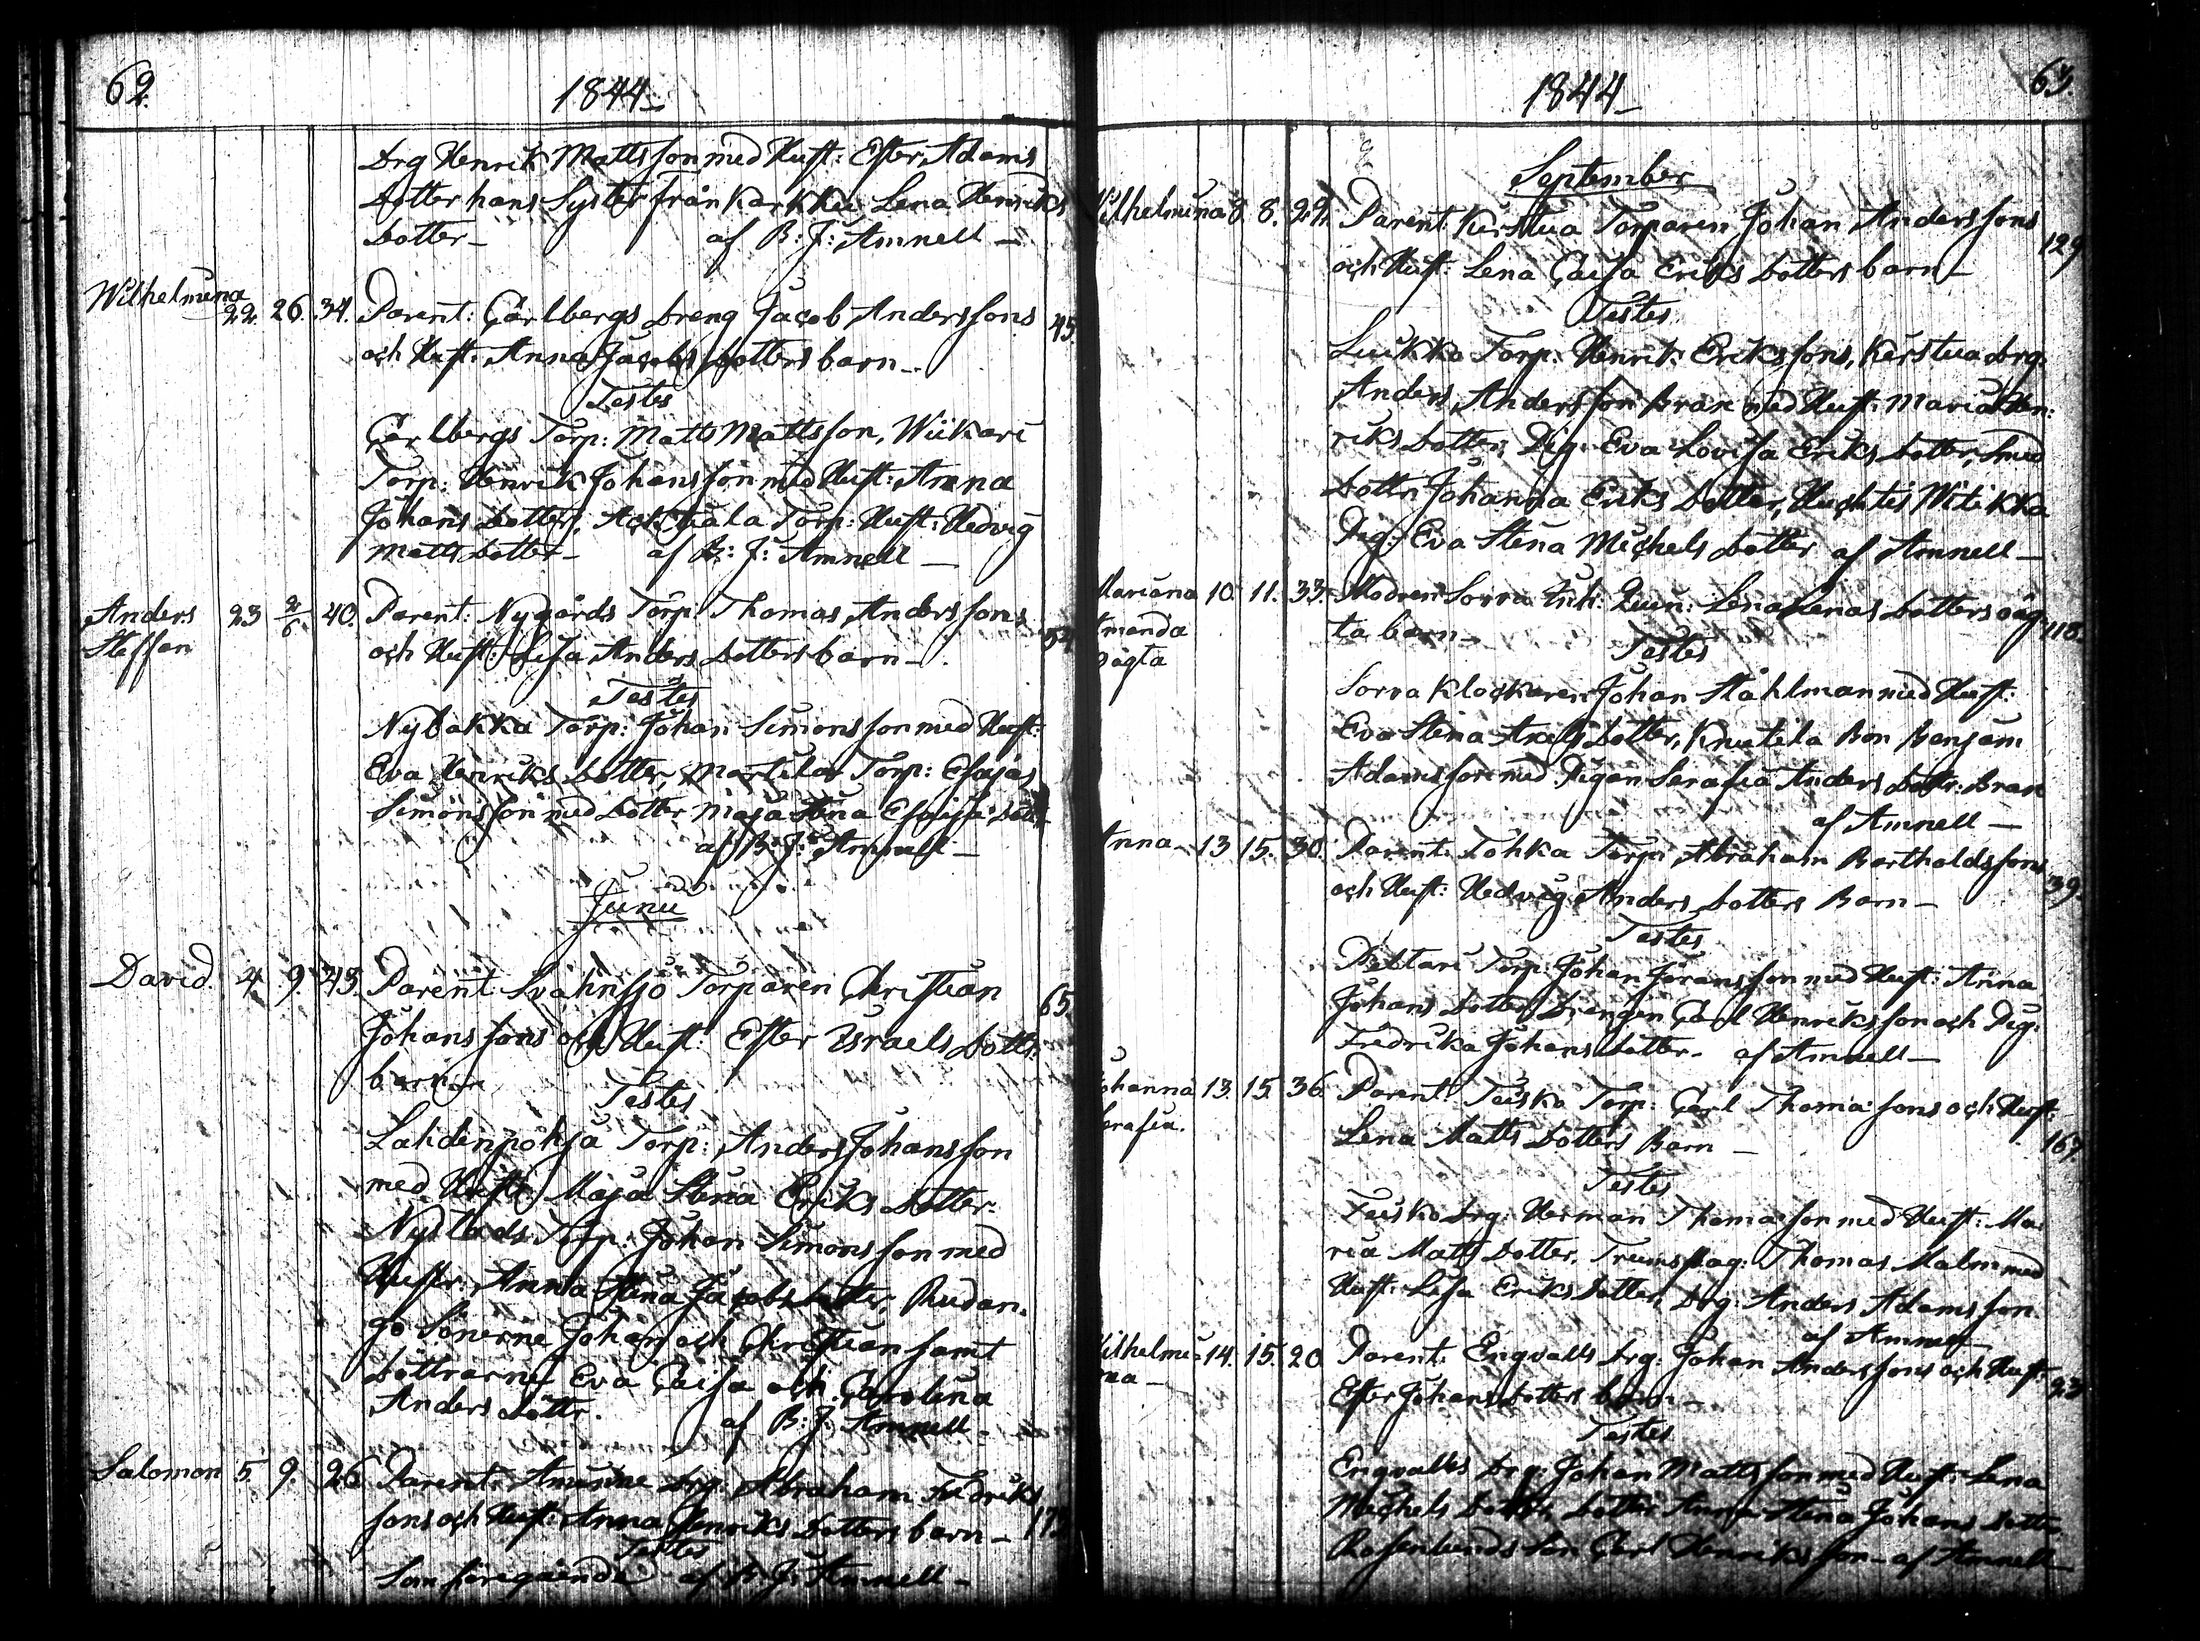 62. 1844
Drg Henrik Mattsson med Hust: Ester Adams
Dotter hans Syster från Karkku Lena Henriks
Dotter_ af B: J: Amnell _
Wilhelmina 22. 26. 34. Parent: Carlbergs Dreng Jacob Anderssons 45
och Hust: Anna Jacobs Dotters barn_
Testes
Carlbergs Torp: Matts Mattsson, Wiikari
Torp: Henrik Johansson med Hust: Anna
Johans Dotter, Torp: Hust: Hedvig
Matts Dotter_ af B: J: Amnell _
Anders 23 2/6 40. Parent: Nygårds Torp: Thomas Anderssons
Steffan och Hust: Lisa Anders Dotters barn_
Testes
Nybakka Torp: Johan Simonsson med Hust:
Eva Henriks Dotter, Martila Torp: Esajas
Simonsson med Dotter Maja Stina
af B: J: Amnell _
Junii
David. 4. 9. 43. Parent: Svahnsjö Torparen Christian 65.
Johanssons och Hust: Ester Israels Dotter
barn
Testes
Lahdenpohja Torp: Anders Johansson
med Hustr: Maja Stina Eriks Dotter.
Torp: Johan Simonsson med
Hustr: Anna Stina Jacobs Dotter, Rudan_
jo Sönerne Johan och Christian samt
Döttrarne Eva Caisa och Carolina
Anders Döttr. af B: J: Amnell_
Salomon 5. 9. 26 Parent: Drg: Abraham Fredriks
sons och Hust: Anna Henriks Dotters barn _
Testes
Som föregående af B: J: Amnell _
1844 63.
September
Wilhelmina 8. 8. 29. Parent: Kirstua Torparen Johan Anderssons 129
och Hust: Lena Caisa Eriks Dotters barn _
Testes
Luukka Torp: Henrik Erikssons, Kirstua Drg:
Anders Andersson Bran med Hust: Maria Hen:
riks Dotter, Pig: Eva Lovisa Eriks Dotter, Smed
Dottr: Johanna Eriks Dotter, Huchtis Witikka
Pig: Eva Stina Michels Dotter af Amnell _
Mariana 10. 11. 33. Modren Sorva Inh: Qvin: Lena Lenas Dotters oäg 118.
Amanda ta barn_
oägta Testes
Sorva Klockaren Johan Ståhlman med Hust:
Eva Stina Axels Dotter, Knutila Bon Benjam
Adamsson med Pigan Serafia Anders Dottr: Bran
af Amnell _
Anna_ 13 15. 30. Parent: Tohka Torp: Abraham Bartholdssons 39.
och Hust: Hedvig Anders Dotters Barn _
Testes
Pettari Torp: Johan Jöransson med Hust: Anna
Johans Dotter, Drengen Carl Henriksson och Pig:
Fredrika Johans Dotter_ af Amnell _
Johanna 13. 15. 36. Parent: Teisko Torp: Carl Thomassons och Hust: 167
Serafia. Lena Matts Dotters Barn _
Testes
Teisko Drg: Herman Thomasson med Hust: Ma
ria Matts Dotter, Trumslag: Thomas Malm med
Hust: Lisa Eriks Dotter, Drg: Anders Adamsson
af Amnell
Wilhelmi- 14. 15. 20. Parent: Engvalls Drg: Johan Anderssons och Hust: 23
na _ Ester Johans Dotters barn_
Testes
Engvalls Drg: Johan Mattsson med Hust: Lena
Michels Dotter, Dotter Anna Stina Johans Dotter
Rosenlunds Son Carl Henriksson_ af Amnell_